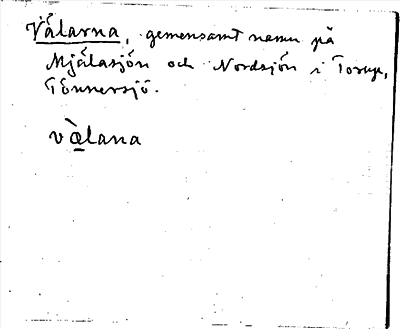 Vålarna, gemensamt namn på
Mjälasjön och Nordsjön i Torup,
Tönnersjö.
vàlana